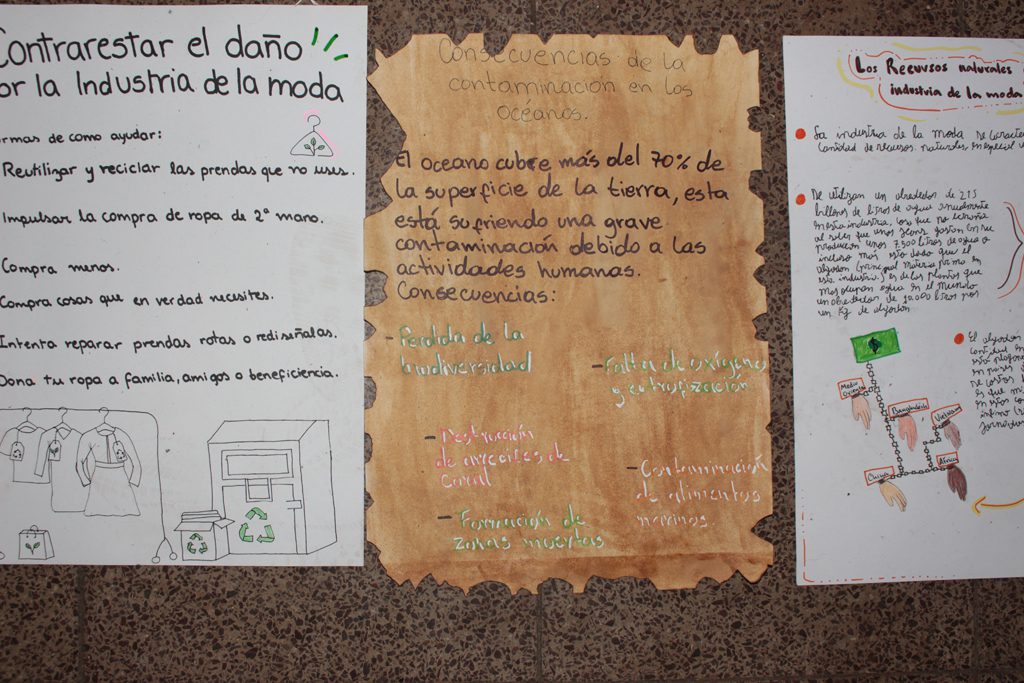 Contrarestar el daño
or la Industria de la moda
rmas de como ayudar:
Reutilizar y reciclar las prendas que no uses.
Impulsar la compra de ropa de 2º mano.
Compra menos.
Compra cosas que en verdad necesites.
Intenta reparar prendas rotas o rediseñalas.
Dona tu ropa a familia, amigos o beneficiencia.
Consecuencias de la
contaminación en los
océanos.
El oceano cubre más del 70% de
la superficie de la tierra, esta
está sufriendo una grave
contaminación debido a las
actividades humanas.
Consecuencias:
- Perdida de la
biodiversidad
- Falta de oxígeno
y eutrofización
- Destrucción
de arrecifes de
coral
- Contaminación
de alimentos
marinos.
- Formación de
zonas muertas
Los Recursos naturales
industria de la moda
La industria de la moda se caracte
cantidad de recursos naturales, en especial
Se utilizan un alrededor de 215
billones de litros de agua anualmente
en esta industria,
producen unos 7.500 litros de agua o
incluso más esto dado que el
algodón (principal materia prima en
esta industria) es de las plantas que
mas ocupan agua en el mundo
un alrededor de 10.000 litros por
un Kg de algodón
El algodón
Medio
Oriente
Bangladesh
Vietnam
China
Africa